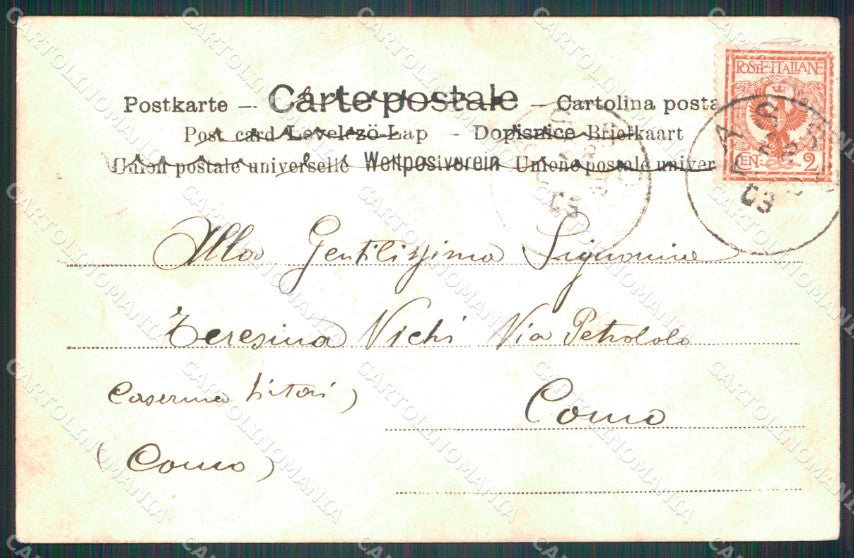 Postkarte — Carte postale — Cartolina posta
Post card Levelezö-Lap - Dopisnice Briefkaart
Union postale universelle Weltpostverein Unione postale univer
POSTE·ITALIANE
CEN. 2
03
Alla Gentilissima Signorina
Teresina Vichi Via Petrololo
Caserma
Como
(Como)
CARTOLINOMANIA